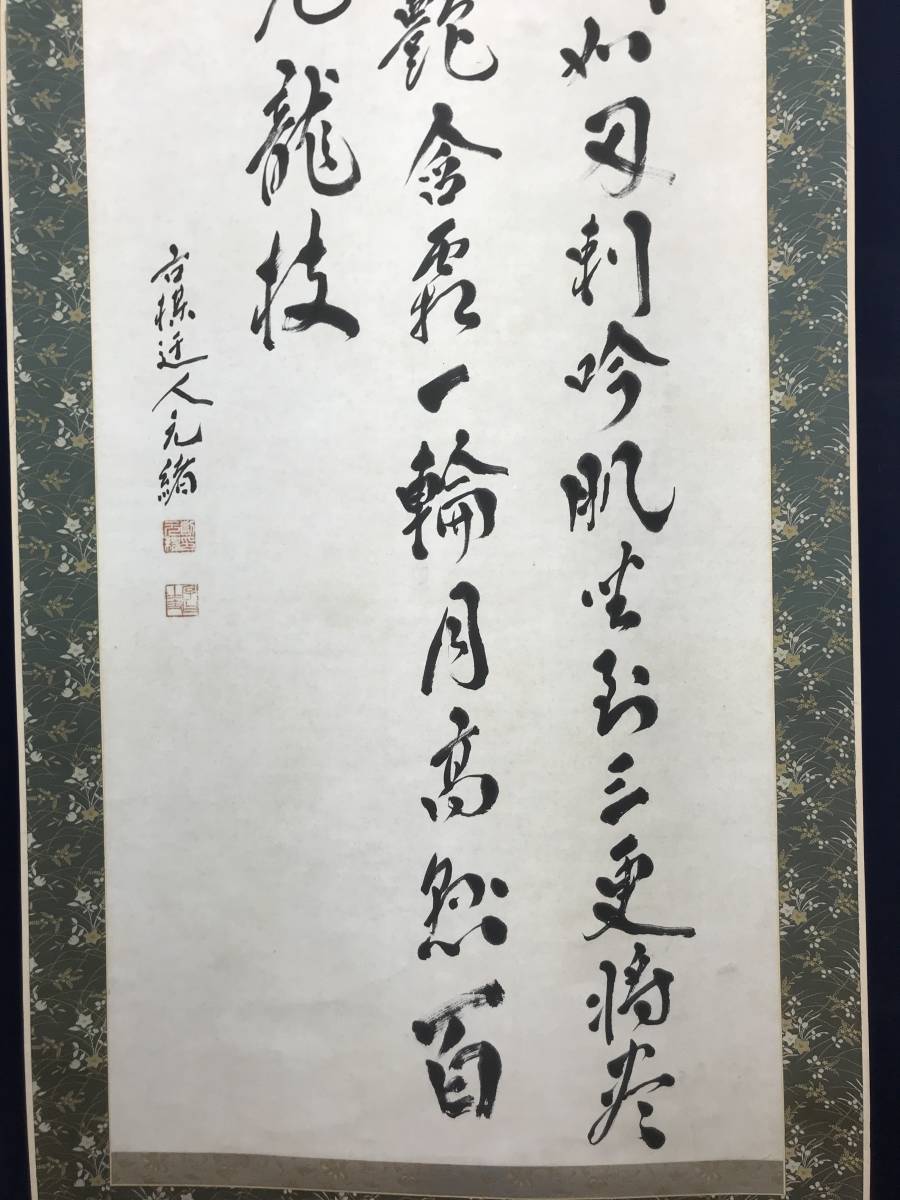 如刃刺吟肌坐到三更將尽
艷含霜一輪月高懸百
龍枝
古楳迂人元緒